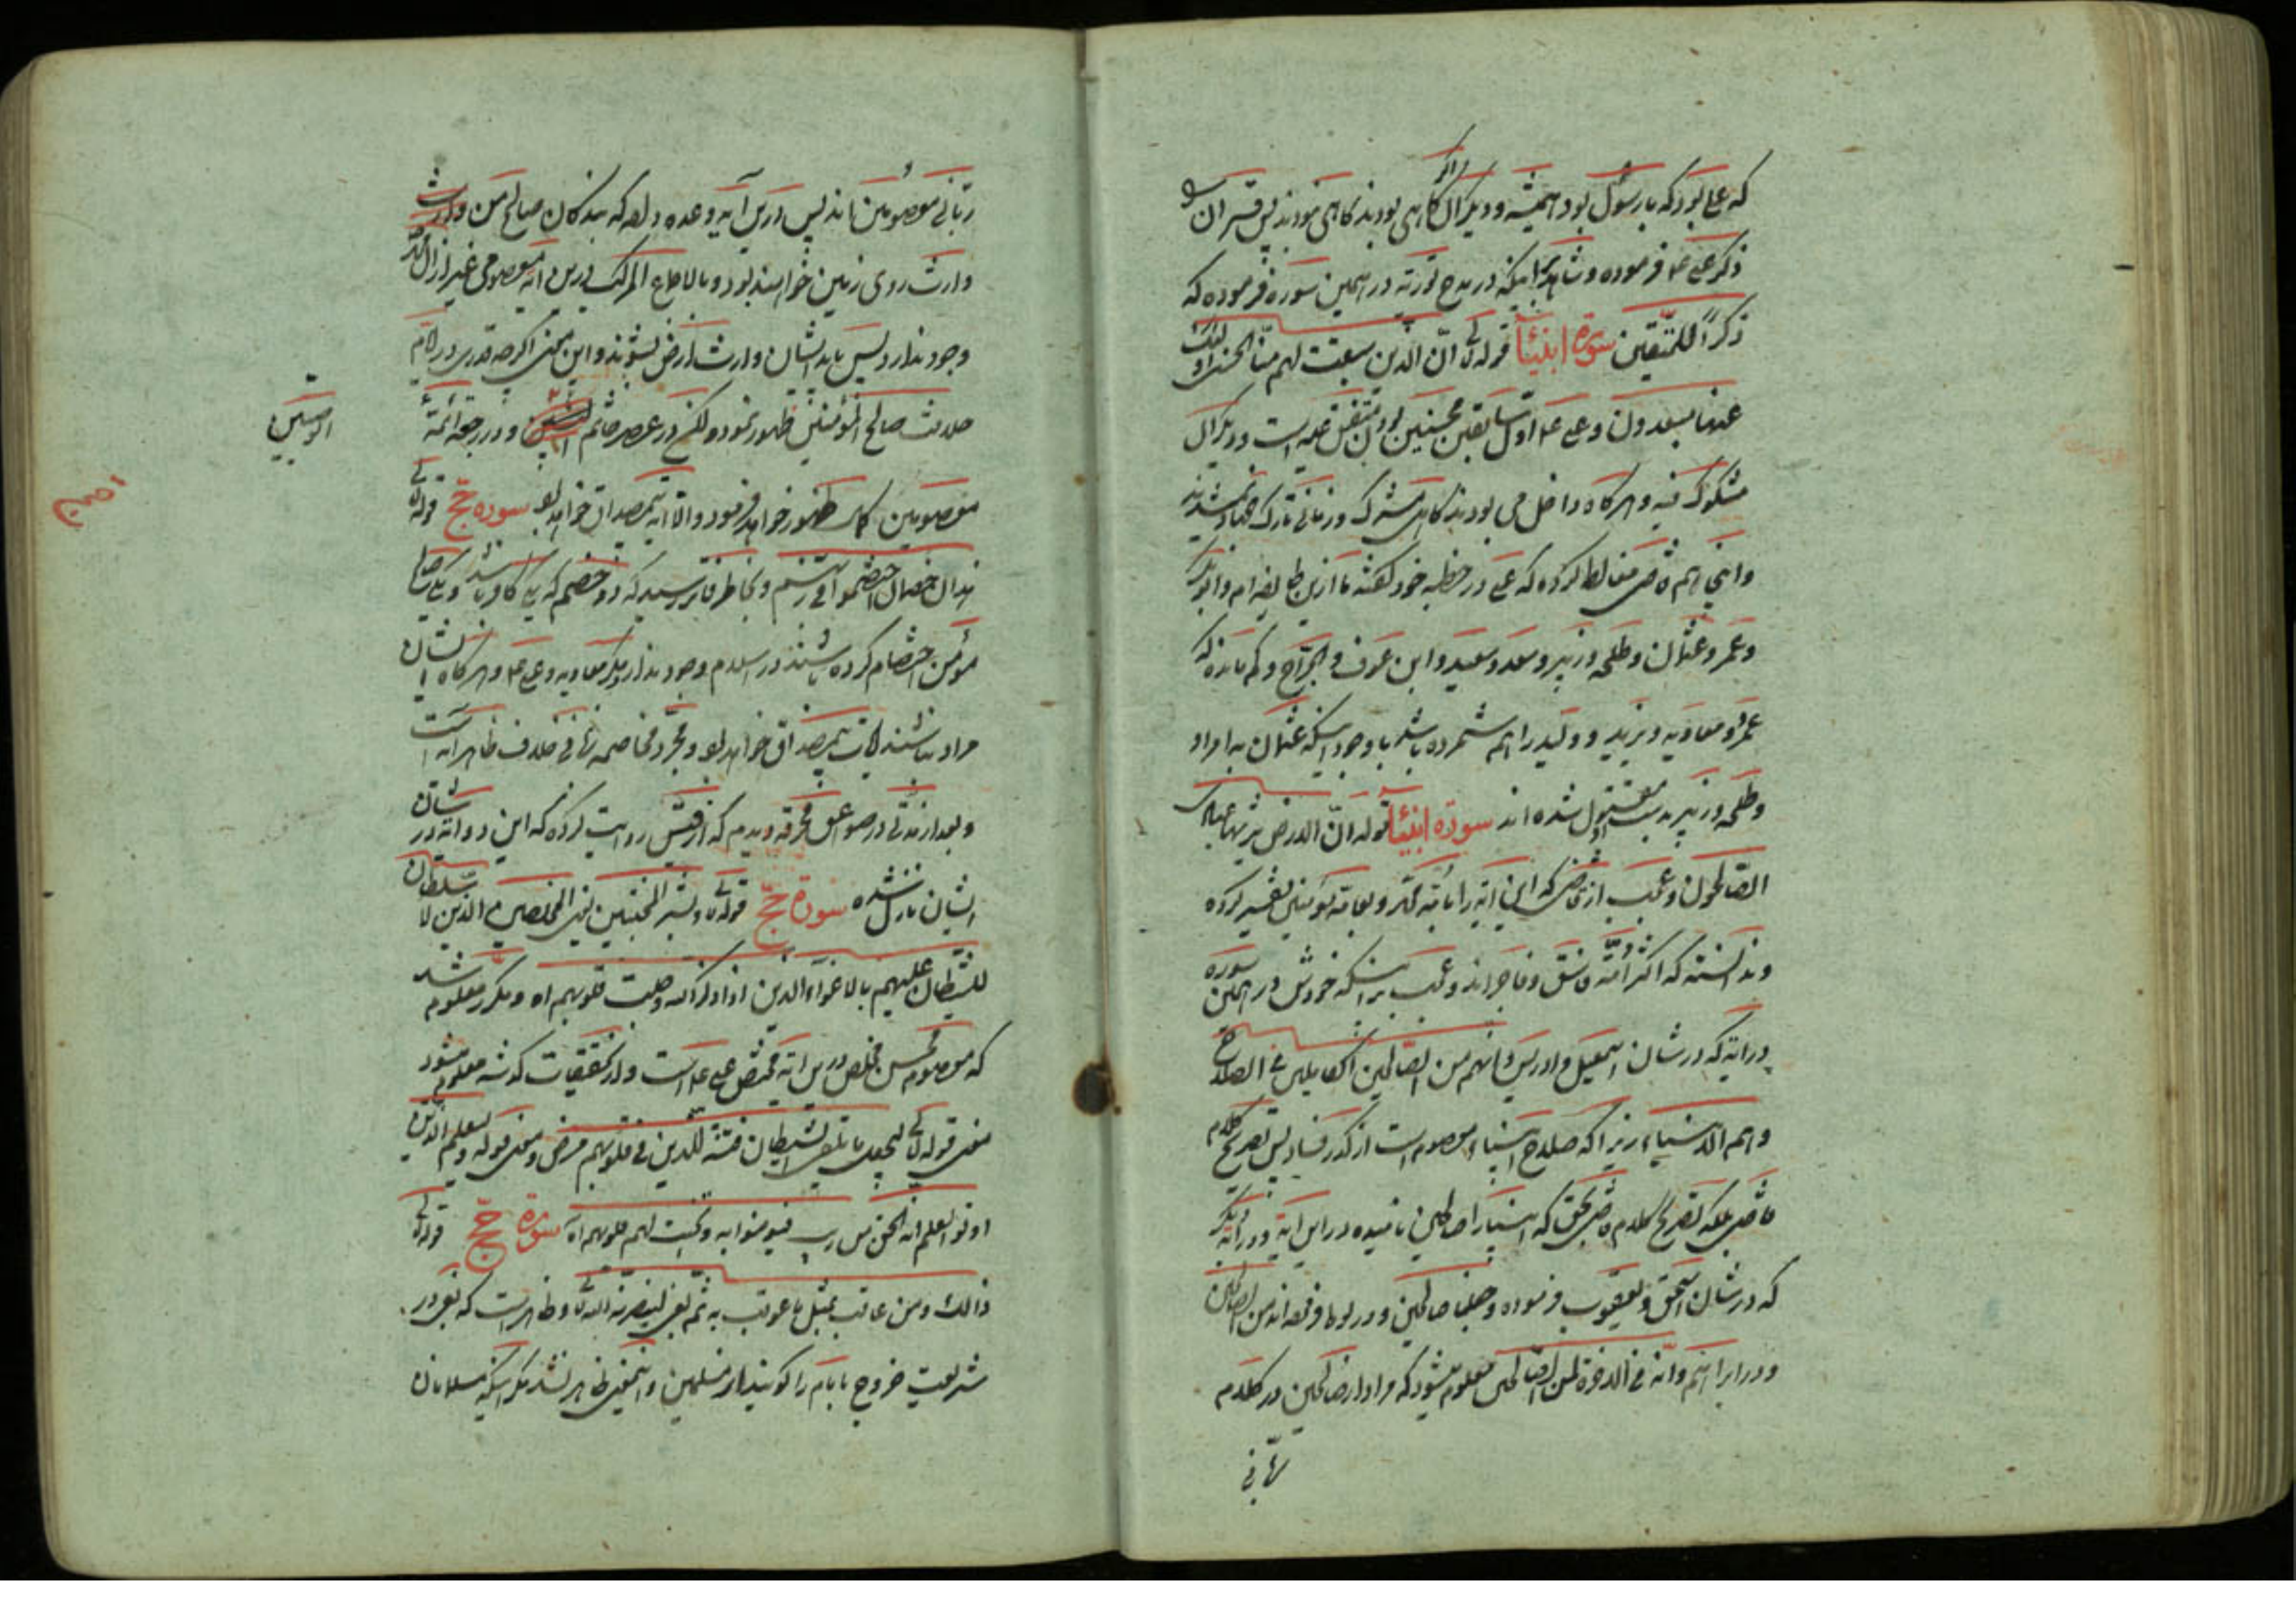 که علی بود که با رسول بود همیشه و دیگران گاهی بودند گاهی نبودند پس قرآن
ذکر علی ع فرموده و شاهد اینکه در مدح توریة در همین سوره فرموده که
ذکرًا للمتّقین سورة انبیاء قوله تع انّ الذین سبقت لهم منّا الحسنی اولئک
عنها مبعدون و علی ع اوّل سابقین محسنین بودن متفق علیه است و دیگران
مشکوک فیه و هرگاه داخل می بودند گاهی مشرک و زمانی تارک جهاد نمیشدند
و اینجا هم قاضی مغالطه کرده که علی در خطبه خود گفته ما ازین طایفه ام و ابوبکر
و عمر و عثمان و طلحه و زبیر و سعد و سعید و ابن عوف و جرّاح و کم مانده که
عمرو و معاویه و یزید و ولید را هم شمرده باشد با وجود اینکه عثمان به امر او
و طلحه و زبیر بدست او مقتول شده اند سورة انبیاء قوله انّ الارض یرثها عبادی
الصّالحون و عجب از قاضی که این آیه را بامّة محمّد و بعامّه مؤمنین تفسیر کرده
و ندانسته که اکثر امّة فاسق و فاجر اند و عجب تر اینکه خودش در همین سوره
در آیه که در شان اسمعیل و ادریس و انهم من الصّالحین الکاملین فی الصلاح
و هم الانبیاء زیرا که صلاح انبیاء معصوم است از کدر فساد پس بصریح کلام
قاضی بلکه بصریح کلام قاضی بحق که انبیا را صالحین نامیده در این آیة و در آیة دیگر
که در شان اسحق و یعقوب فرموده و جعلنا صالحین و در لوط فرموده انه من الصالحین
و در ابراهیم و انّه فی الاخرة لمن الصّالحین معلوم میشود که مراد از صالحین در کلام
ربّانی
ربّانی معصومین اند پس درین آیه وعده داده که بندگان صالح من وارث
وارث روی زمین خواهند بود و بالاجماع المرکب درین امة معصومی غیر از آل محمّد
وجود ندارد پس باید ایشان وارث ارض بشوند و این معنی اگرچه قدری در ایّام
خلافت صالح المؤمنین ظهور نمود ولکن در عصر خاتم و در رجعه ائمّة
الوصیین
معصومین کامل ظهور خواهد فرمود والّا آیه بی مصداق خواهد بود سوره حجّ قوله تع
هذان خصمان اختصموا فی ربّهم و بخاطر فاتر رسید که دو خصم که یکی کافر باشد و یکی
مؤمن اختصام کرده باشند در اسلام وجود ندارد مگر معاویه و علی ع و هرگاه ایشان
مراد نباشند آیات بی مصداق خواهد بود و مجرّد مخاصمه زبانی خلاف ظاهر آیه است
و بعد از مدّتی در صواعق محرقه دیدم که از قیس روایت کرده که این دو آیه در شان
ایشان نازل شده سورة حجّ قوله تع و بشّر المخبتین یعنی المخلصین الذین لا سلطان
للشّیطان علیهم بالاغواء الذین اذا ذکر الله وجلت قلوبهم اه و مکرر معلوم شد
که معصوم مخلص درین آیه مختص علی ع است و از تحقیقات گذشته معلوم میشود
معنی قوله تع لیجعل ما یلقی الشیطان فتنة للذین فی قلوبهم مرض و معنی قوله و لیعلم الذین
اوتوا العلم انه الحق من ربک فیؤمنوا به و تخبت لهم قلوبهم اه سورة حجّ قوله تع
ذالک و من عاقب بمثل ما عوقب به ثم بغی لینصرنه الله تع و ظاهر است که بغی در
شریعت خروج با امام را گویند از مسلمین و این معنی ظاهر نشد مگر اینکه مسلمانان